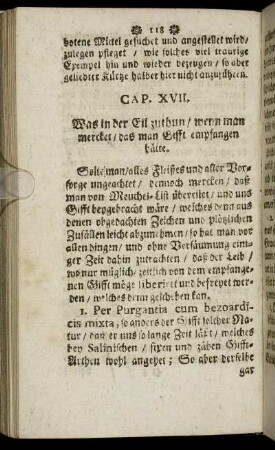 118
botene Mittel gesuchet und angestellet wird/
zulegen pfleget / wie solches viel traurige
Exempel hin und wieder bezeugen / so aber
geliebter Kürtze halber hier nicht anzuführen.
CAP. XVII.
Was in der Eil zuthun / wenn man
mercket / das man Gifft empfangen
hätte.
Solte man / alles Fleißes und aller Vor-
sorge ungeachtet / dennoch mercken / daß
man von Meuchel-List übereilet / und uns
Gifft beygebracht wäre / welches denn aus
denen obgedachten Zeichen und plötzlichen
Zufällen leicht abzunehmen / so hat man vor
allen dingen / und ohne Versäumung eini-
ger Zeit dahin zutrachten / daß der Leib /
wo nur müglich / zeitlich von dem empfange-
nen Gifft möge liberiret und befreyet wer-
den / welches denn geschehen kan.
1. Per Purgantia cum bezoardi-
cis mixta, so anders der Gifft solcher Na-
tur / daß er uns so lange Zeit läst / welches
bey Salinischen / fixen und zähen Gifft-
Arthen wohl angehet; So aber derselbe
gar